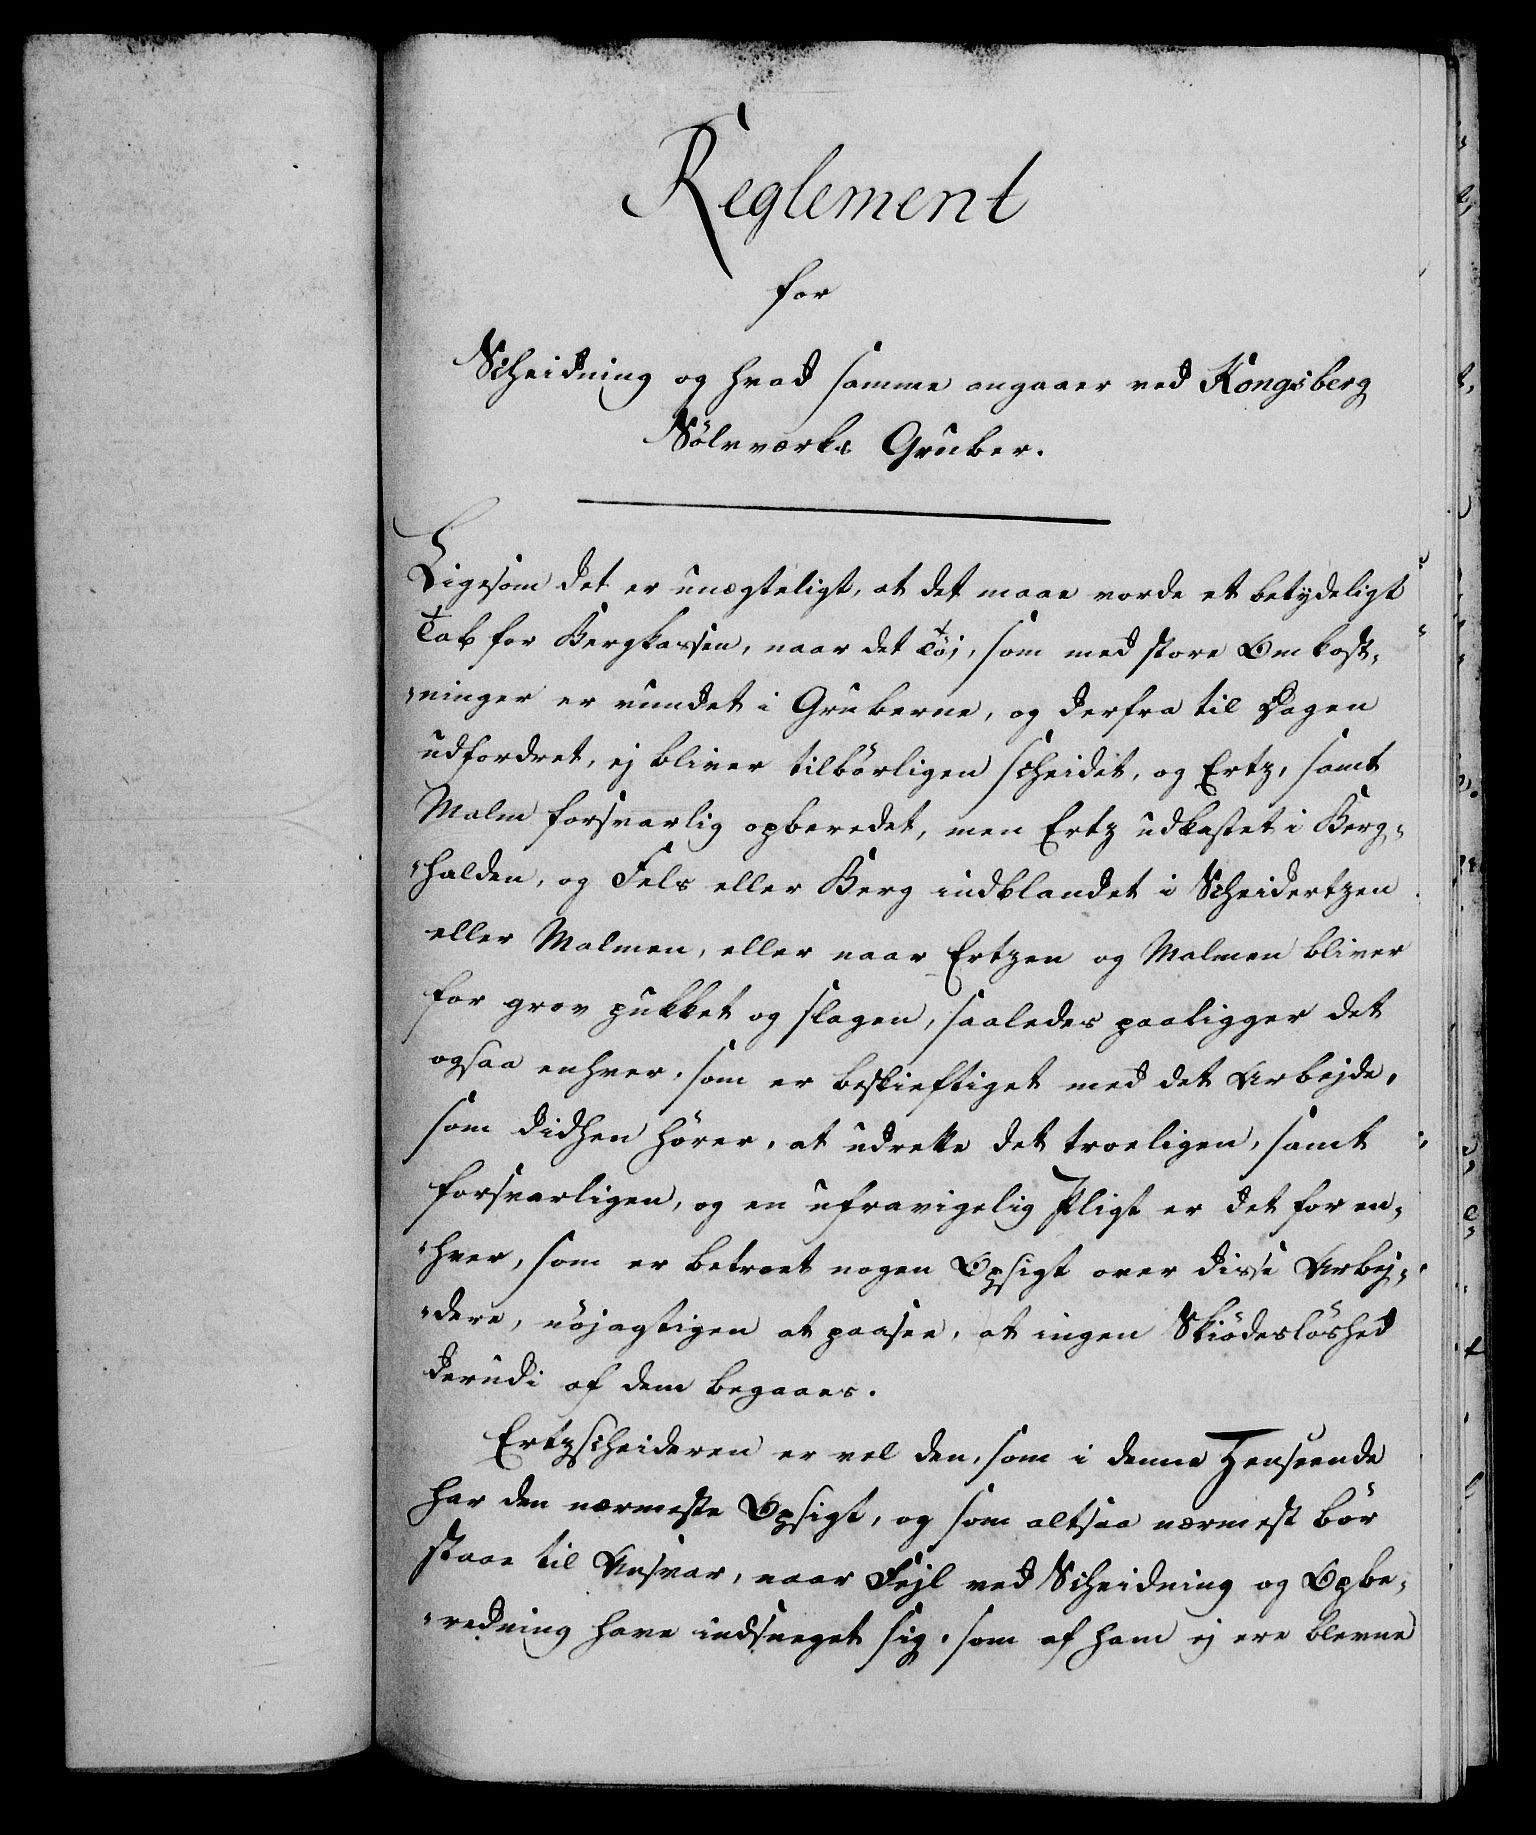 Reglement
for
Scheidning og hvad samme angaaer ved Kongsberg
Sölvværks Gruber.
Ligesom det er unægteligt, at det maae vorde et betydeligt
Tab for Bergkassen, naar det Töj, som med store Omkost-
-ninger er vundet i Gruberne, og derfra til Dagen
udfordret, ej bliver tilbörligen scheidet, og Ertz, samt
Malm forsvarlig opberedet, men Ertz udkastet i Berg-
-halden, og Fels eller Berg indblandet i Scheidertzen
eller Malmen, eller naar Ertzen og Malmen bliver
for grov pukket og slagen, saaledes paaligger det
ogsaa enhver, som er beskieftiget med det Arbejde,
som didhen hörer, at udrette det troeligen, samt
forsvarligen, og en ufravigelig Pligt er det for en-
-hver, som er betroet nogen Opsigt over disse Arbej-
-dere, nöjagtigen at paasee, at ingen Skiödeslöshed
derudi af dem begaaes.
Ertzscheideren er vel den, som i denne Henseende
har den nærmeste Opsigt, og som altsaa nærmest bör
staae til Ansvar, naar Fejl ved Scheidning og Opbe-
-redning have indsneget sig, som af ham ej ere blevne